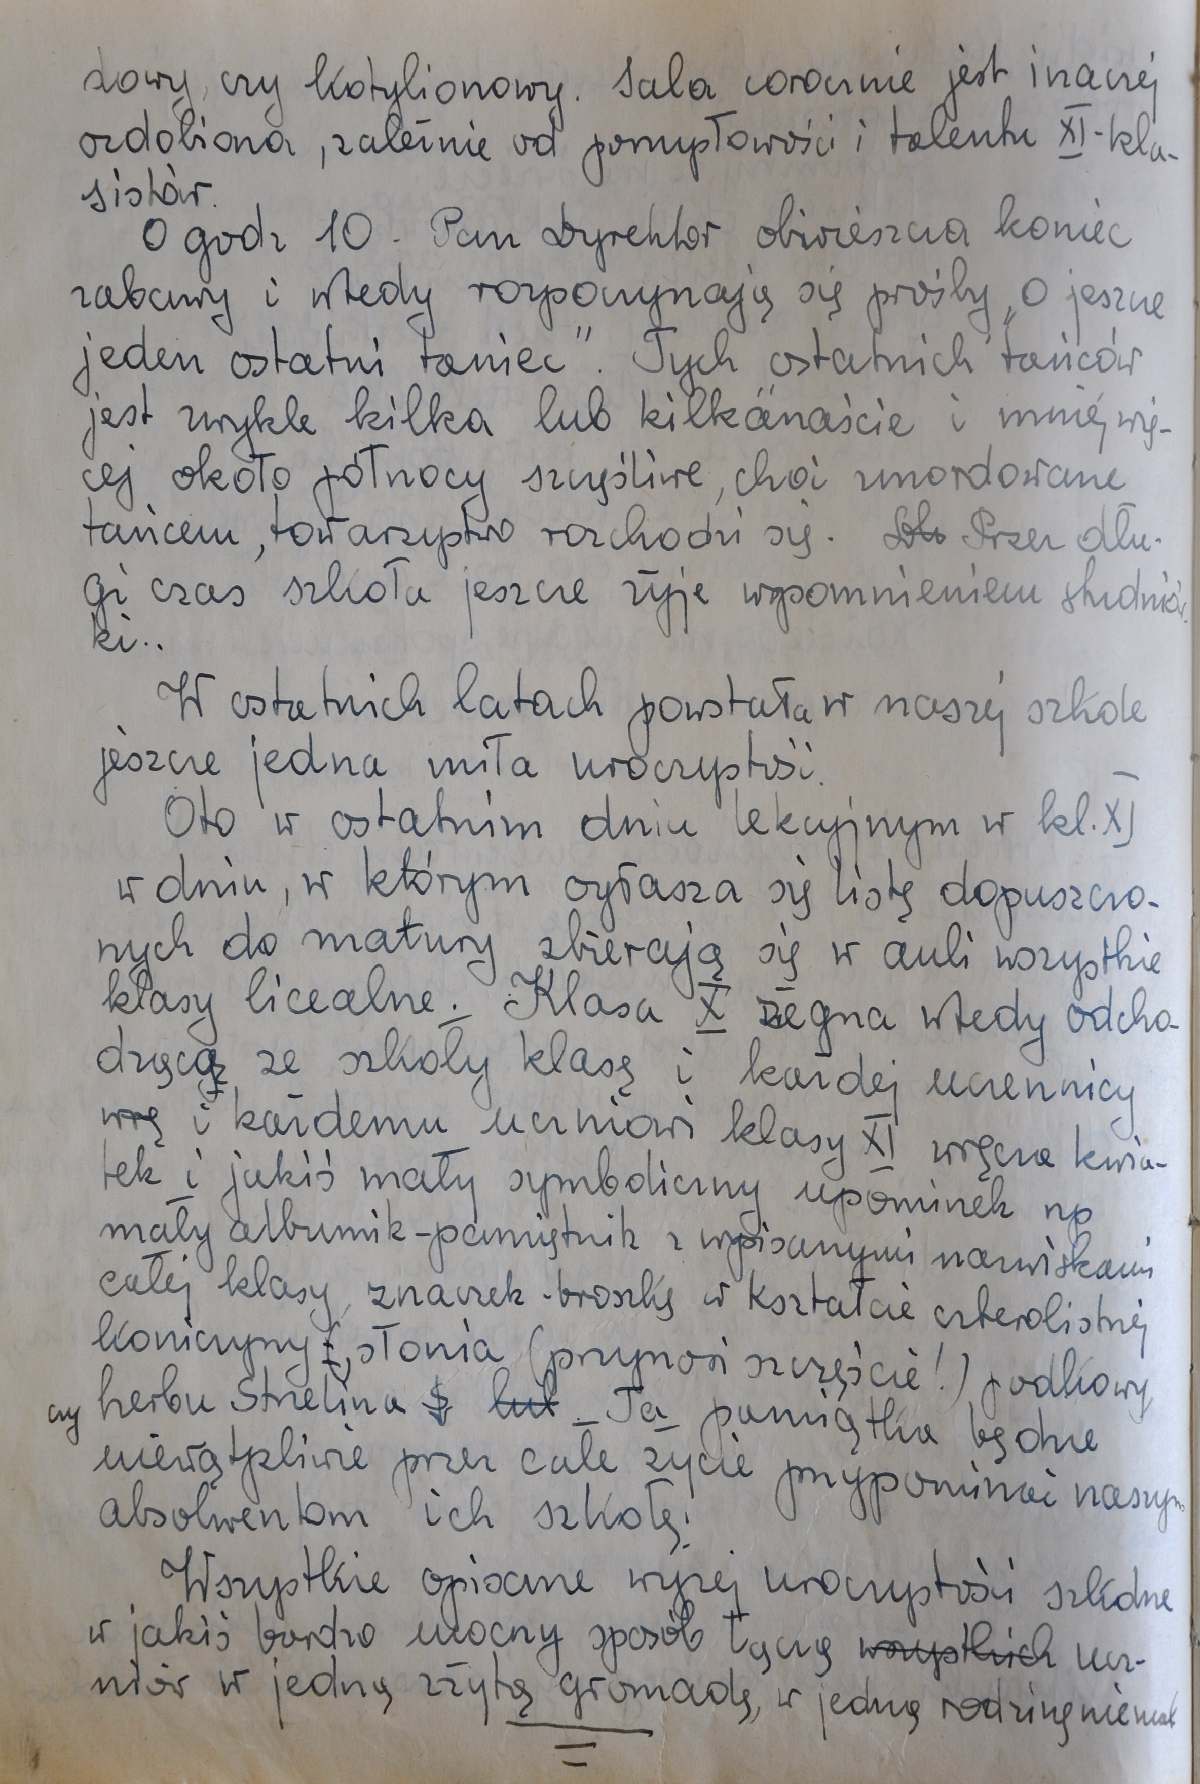 zowy, czy kotylionowy. Sala corocznie jest inaczej
ozdobiona, zależnie od pomysłowości i talentu XI-kla-
sistów.
O godz 10. Pan Dyrektor obwieszcza koniec
zabawy i wtedy rozpoczynają się prośby „o jeszcze
jeden ostatni taniec". Tych ostatnich tańców
jest zwykle kilka lub kilkanaście i mniej wię-
cej około północy szczęśliwe, choć zmordowane
tańcem, towarzystwo rozchodzi się. Przez dłu-
gi czas szkoła jeszcze żyje wspomnieniem studniów-
ki..
W ostatnich latach powstała w naszej szkole
jeszcze jedna miła uroczystość.
Oto w ostatnim dniu lekcyjnym w kl. XI
w dniu, w którym ogłasza się listę dopuszczo-
nych do matury zbierają się w auli wszystkie
klasy licealne. Klasa X żegna wtedy odcho-
dzącą ze szkoły klasę i każdej uczennicy
wrę i każdemu uczniowi klasy XI wręcza kwia-
tek i jakiś mały symboliczny upominek np
mały albumik-pamiętnik z wpisanymi nazwiskami
całej klasy, znaczek-broszkę w kształcie czterolistnej
koniczyny, słonia (przynosi szczęście!) podkowy,
czy herbu Strzelina lub Ta pamiątka będzie
niewątpliwie przez całe życie przypominać naszym
absolwentom ich szkołę.
Wszystkie opisane wyżej uroczystości szkolne
w jakiś bardzo mocny sposób łączą wszystkich ucz-
niów w jedną zżytą gromadę, w jedną rodzinę niemal